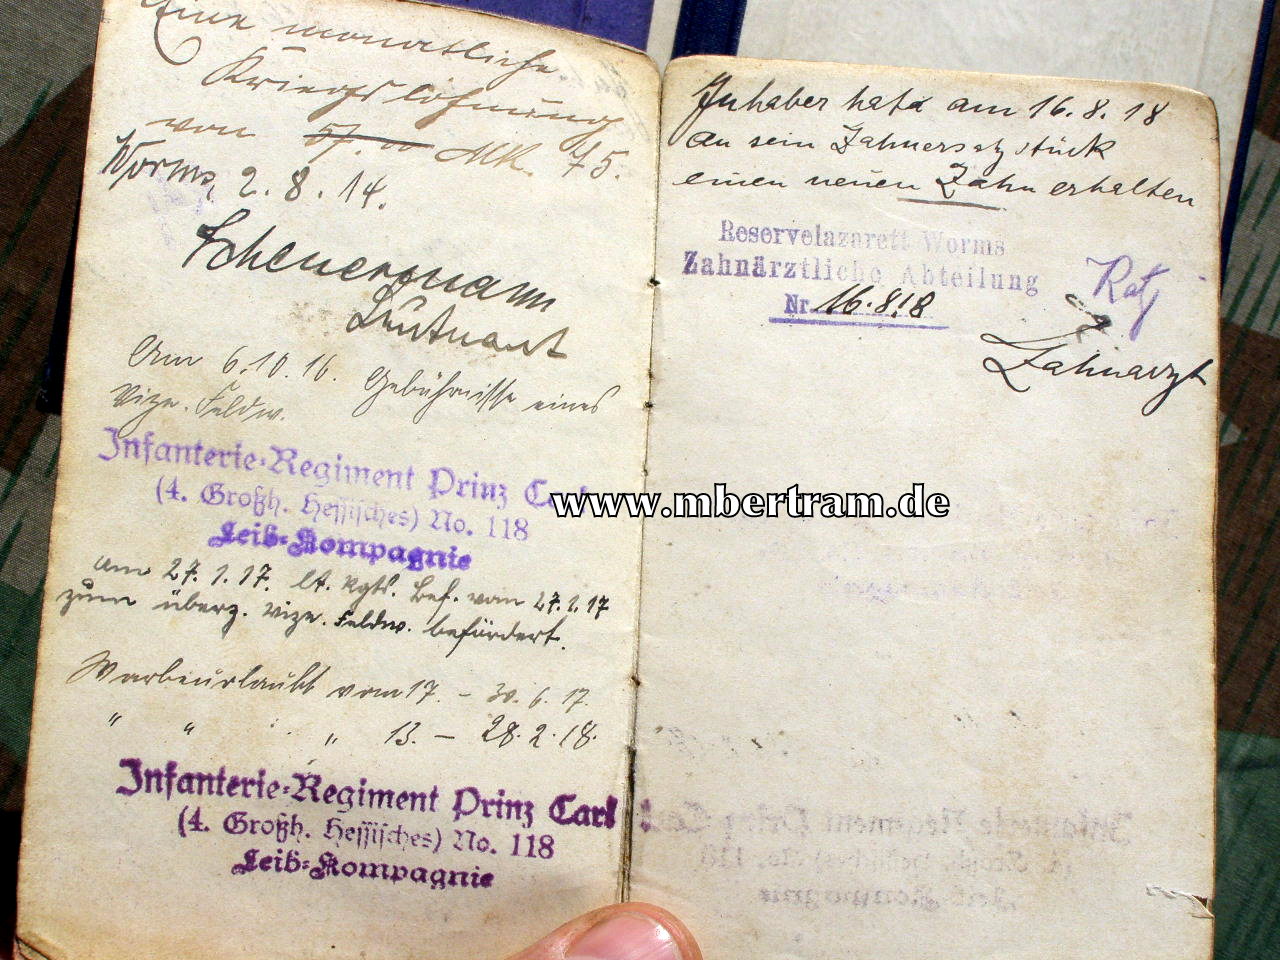 Eine monatliche
Kriegslöhnung
von 57.00 MK. 75.
Worms, 2.8.14.
Scheuermann
Leutnant
Am 6.10.16. Gebührnisse eines
Vize. Feldw.
Infanterie-Regiment Prinz Carl
(4. Großh. Hessisches) No. 118
Leib-Kompagnie
am 27.1.17. lt. Rgts. Bef. vom 27.1.17
zum überz. Vize. Feldw. befördert.
vom 17. - 30.6.17.
" " " 13. - 28.2.18.
Infanterie-Regiment Prinz Carl
(4. Großh. Hessisches) No. 118
Leib-Kompagnie
Inhaber hat am 16.8.18
an sein Zahnersatzstück
einen neuen Zahn erhalten
Reservelazarett Worms
Zahnärztliche Abteilung
Nr. 16.8.18
Zahnarzt
www.mbertram.de